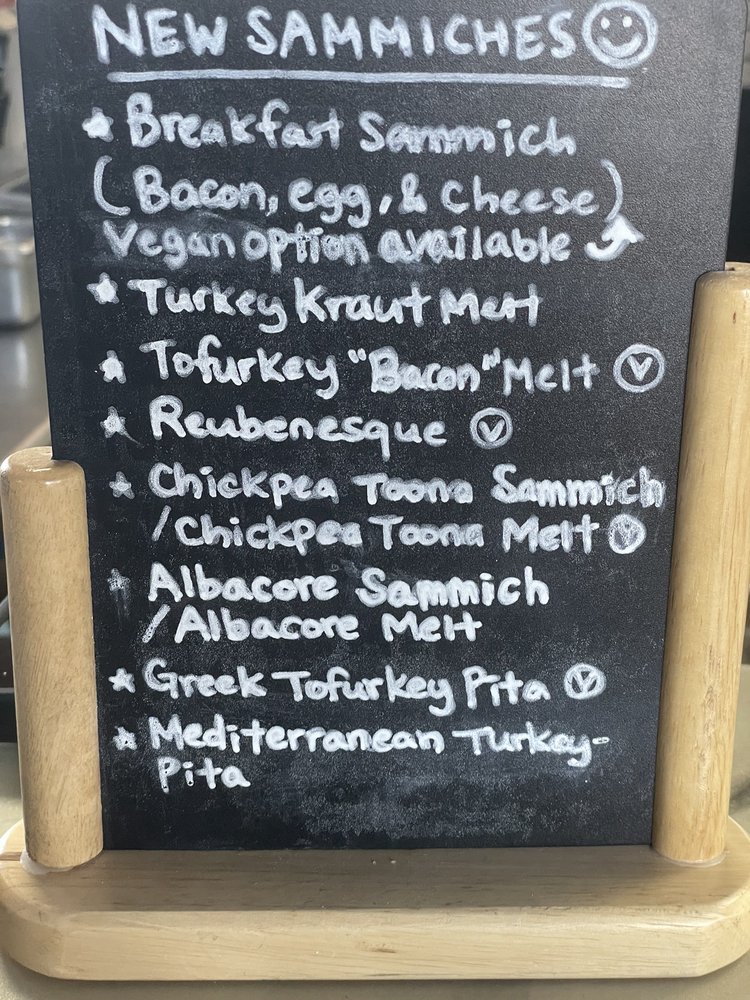 NEW SAMMICHES
Breakfast Sammich
(Bacon, egg, & Cheese)
Vegan option available
Turkey Kraut Melt
Tofurkey "Bacon" Melt V
Reubenesque V
Chickpea Toona Sammich
/Chickpea Toona Melt V
Albacore Sammich
/Albacore Melt
Greek Tofurkey Pita V
Mediterranean Turkey-
Pita